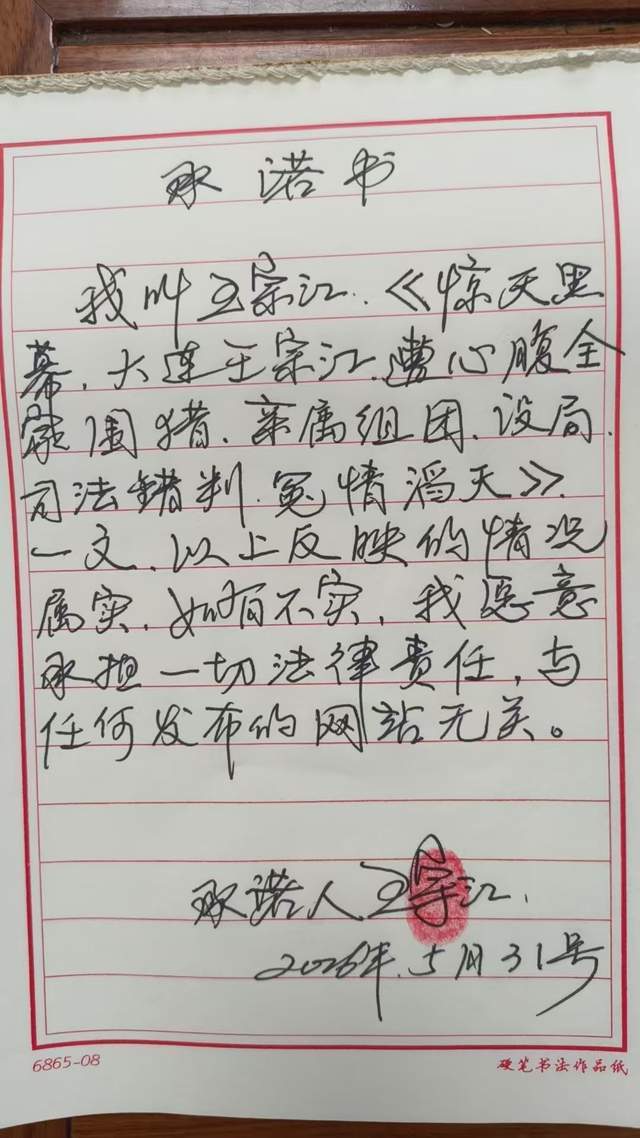 承诺书
我叫王宗江.《惊天黑
幕,大连王宗江.遭心腹全
家围猎.亲属组团.设局.
司法错判.冤情滔天》.
一文.以上反映的情况
属实.如有不实,我愿意
承担一切法律责任,与
任何发布的网站无关。
承诺人.王宗江.
2026年.5月31号
6865-08
硬笔书法作品纸